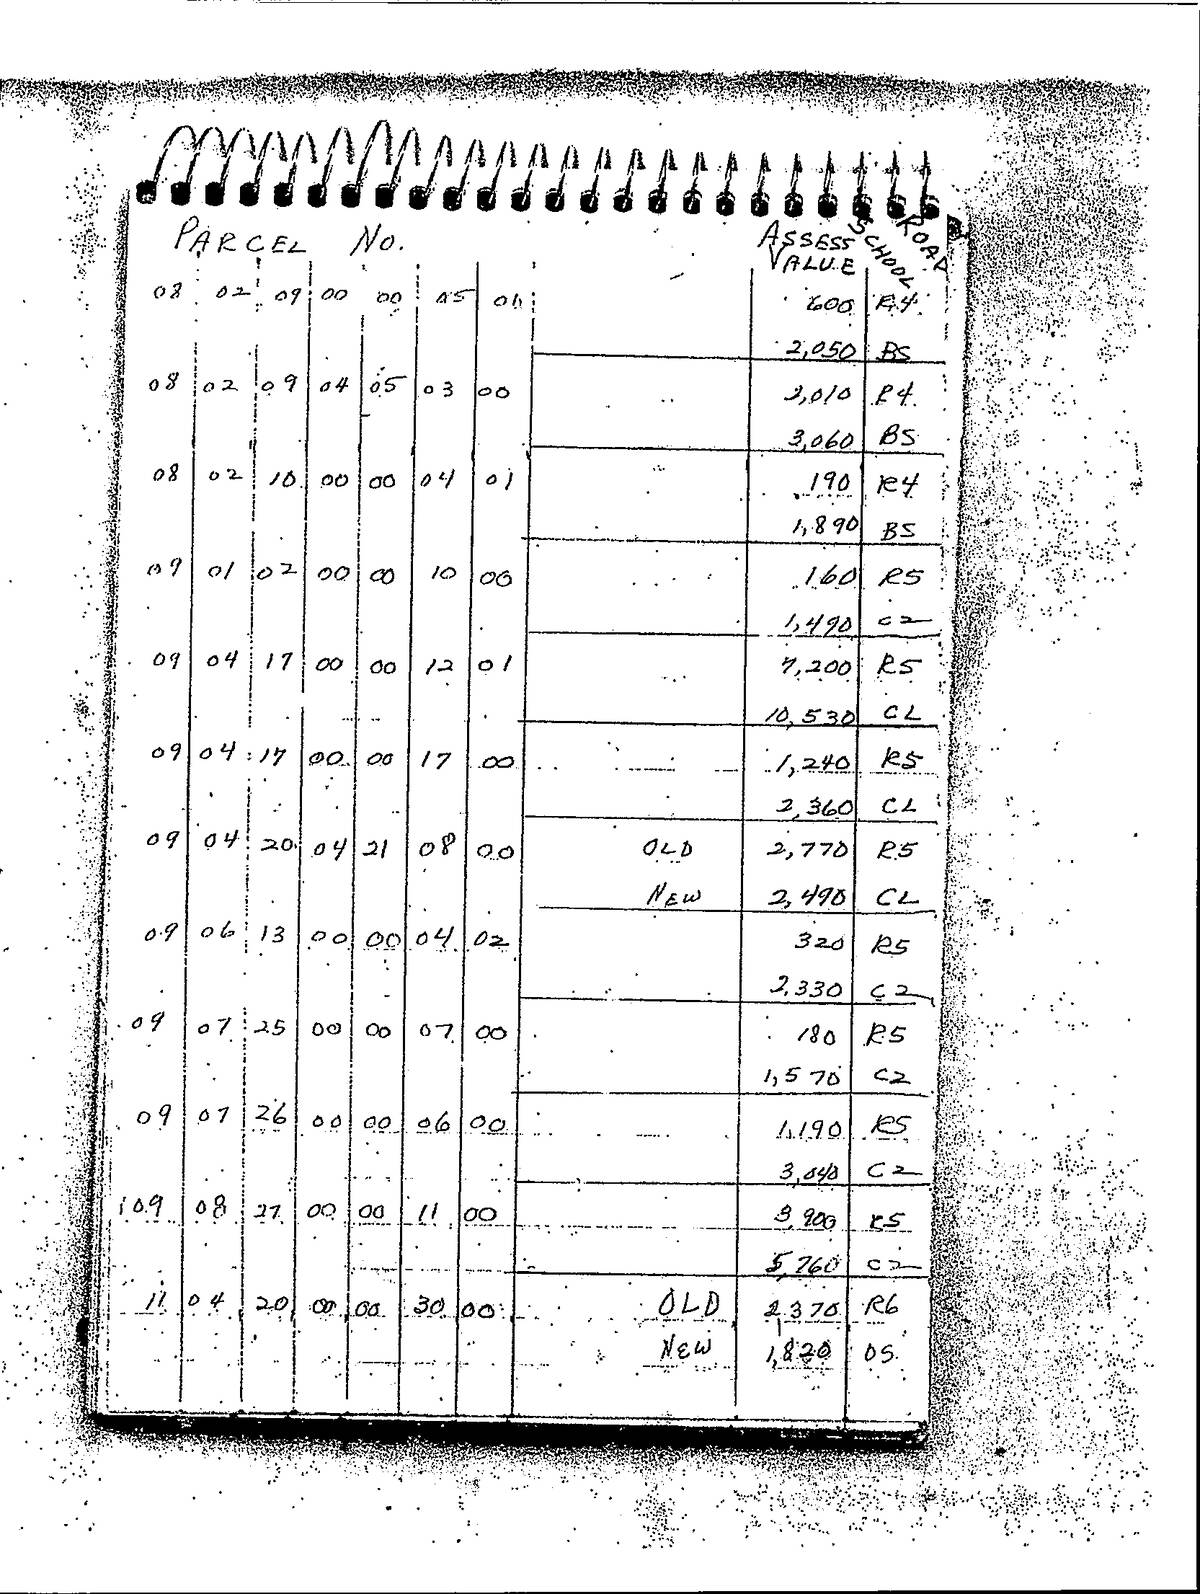 PARCEL NO. ASSESS VALUE SCHOOL ROAD
08 02 09 00 00 05 01 600 R4
2,050 BS
08 02 09 04 05 03 00 2,010 R4
3,060 BS
08 02 10 00 00 04 01 190 R4
1,890 BS
09 01 02 00 00 10 00 160 R5
1,490 C2
09 04 17 00 00 12 01 7,200 R5
10,530 CL
09 04 17 00 00 17 00 1,240 R5
2,360 CL
09 04 20 04 21 08 00 OLD 2,770 R5
NEW 2,490 CL
09 06 13 00 00 04 02 320 R5
2,330 C2
09 07 25 00 00 07 00 180 R5
1,570 C2
09 07 26 00 00 06 00 1,190 R5
3,040 C2
09 08 27 00 00 11 00 3,900 R5
5,760 C2
11 04 20 00 00 30 00 OLD 2,370 R6
NEW 1,820 OS